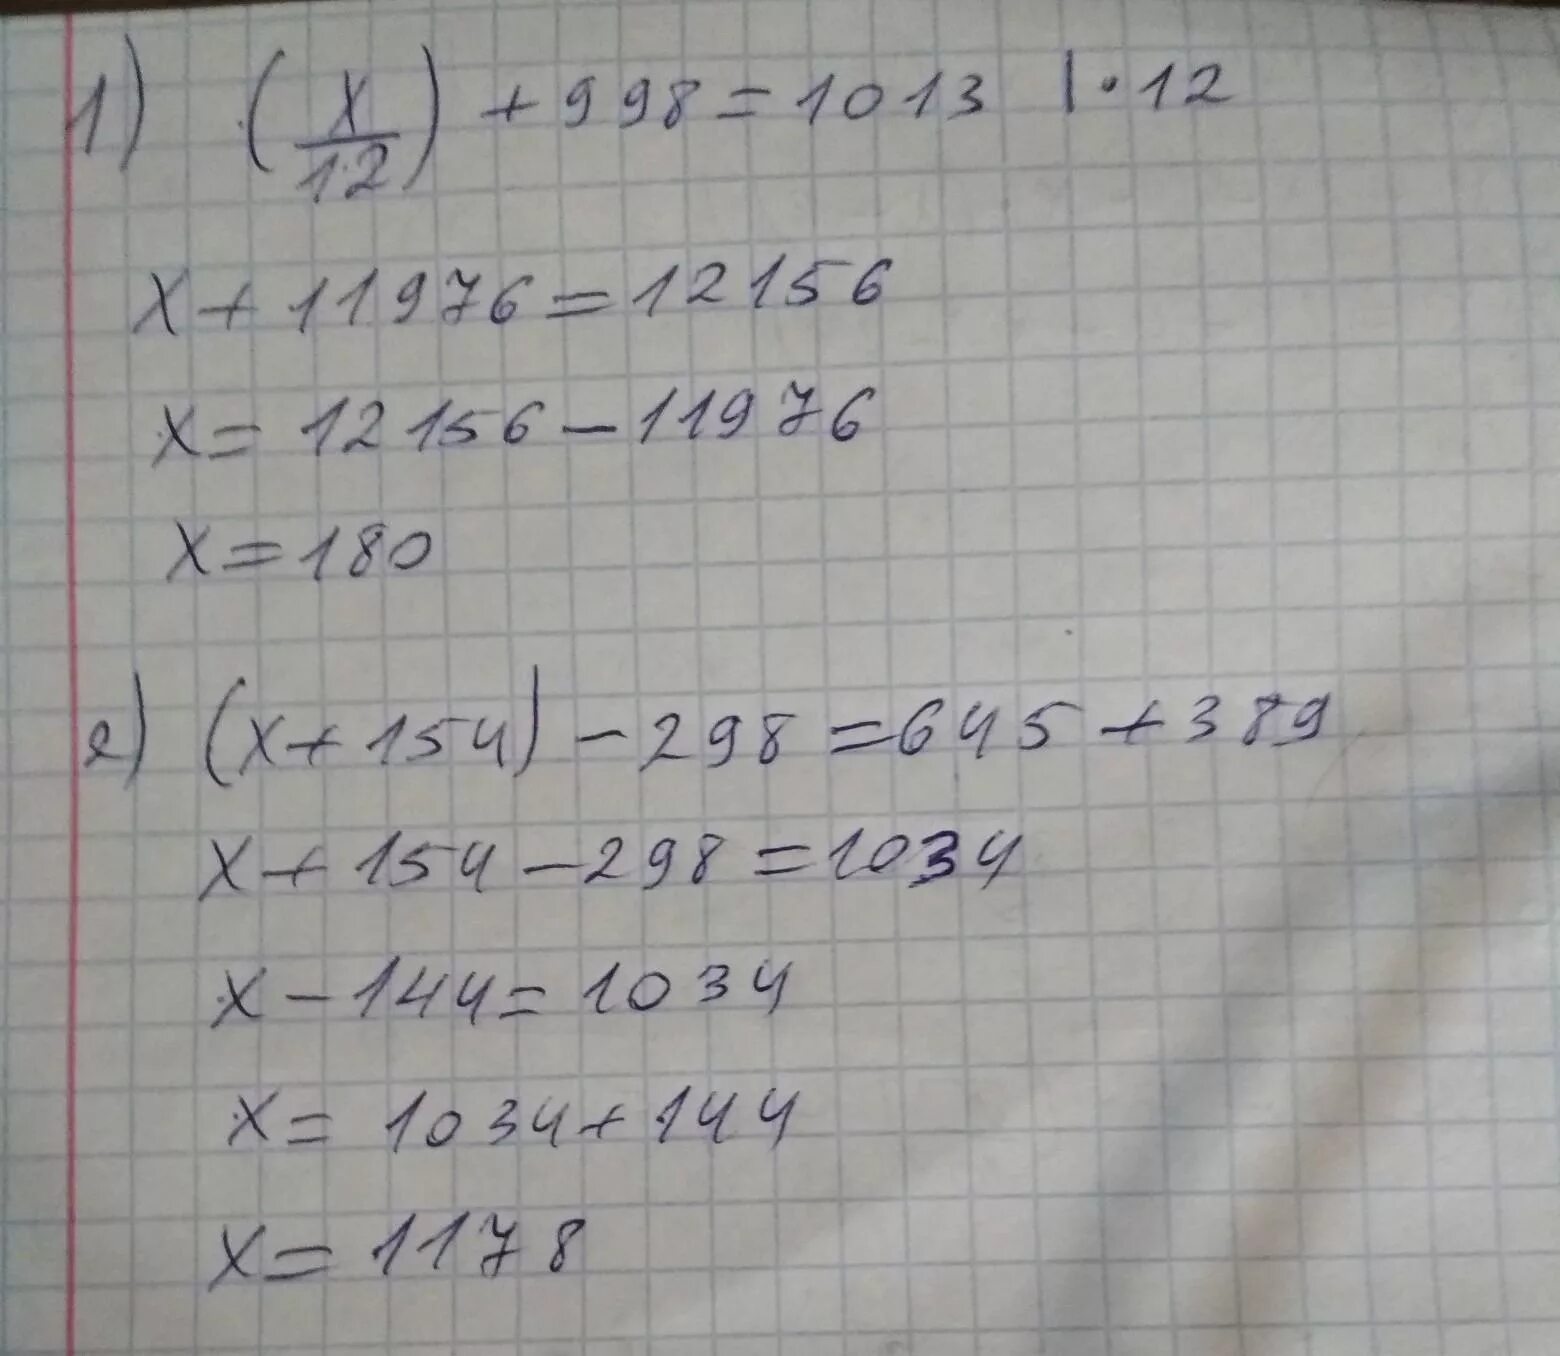 1) (x/12) + 998 = 1013 | · 12
x + 11976 = 12156
x = 12156 - 11976
x = 180
2) (x + 154) - 298 = 645 + 389
x + 154 - 298 = 1034
x - 144 = 1034
x = 1034 + 144
x = 1178